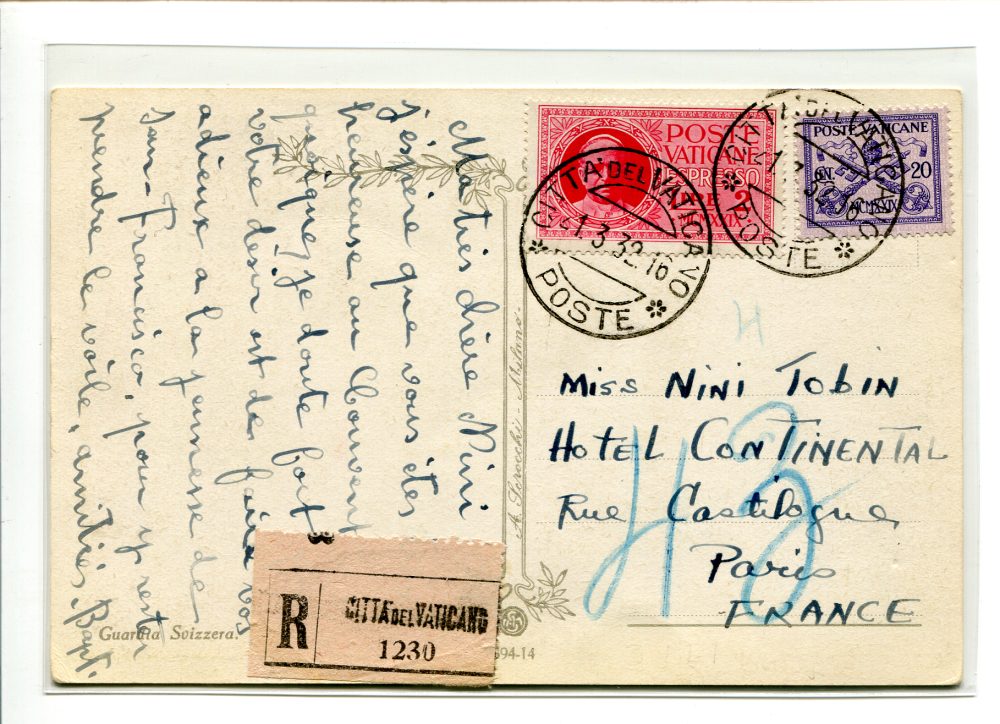 Ma très chère Nini
J'espère que vous êtes
heureuse au Couvent
quoique je doute fort
votre désir est de faire vos
adieux a la jeunesse de
San-Francisco, pour y rester
prendre le voile, amitiés, Bapt.
Guardia Svizzera.
R
CITTÀ DEL VATICANO
1230
694-14
A. Scrocchi - Milano
POSTE
VATICANE
ESPRESSO
LIRE 2
POSTE VATICANE
CENT. 20
MCMXXIX
CITTÀ DEL VATICANO
1.3.32.16
POSTE
CITTÀ DEL VATICANO
POSTE
Miss Nini Tobin
Hotel Continental
Rue Castiglogne
Paris
FRANCE
H3